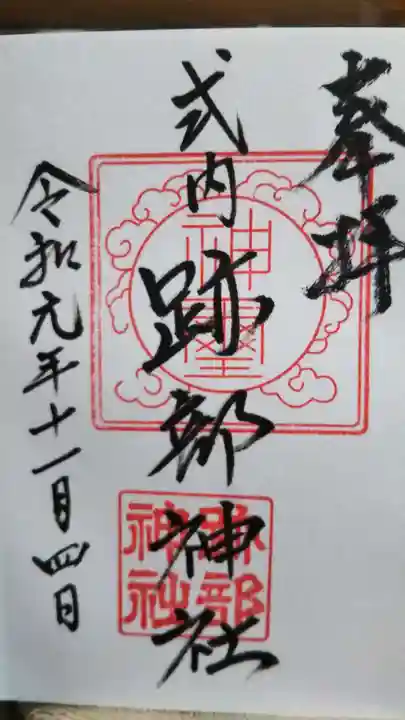 奉拝
式内 跡部神社
令和元年十一月四日
神璽
跡部神社